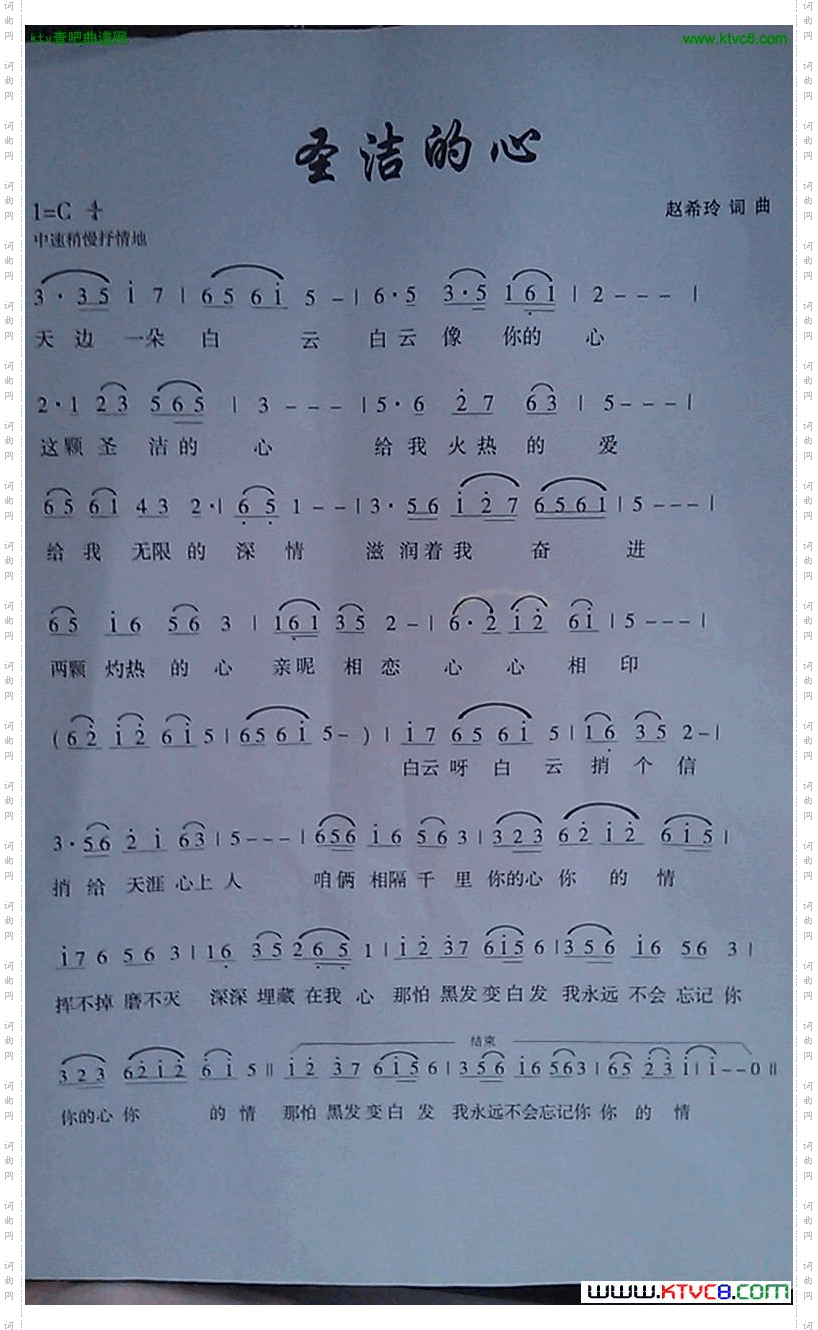 ktv查吧曲谱网
www.ktvc8.com
圣洁的心
1=C 4/4
赵希玲 词 曲
中速稍慢抒情地
3· 35 i 7 | 65 6i 5 - | 6·5 3·5 161 | 2 - - - |
天边 一朵 白 云 白云 像 你的 心
2·1 23 565 | 3 - - - | 5·6 2̇7 63 | 5 - - - |
这颗 圣 洁的 心 给我 火热 的 爱
65 61 43 2· | 6̣5̣ 1 - - | 3·56 i2̇7 6561 | 5 - - - |
给 我 无限 的 深 情 滋润着我 奋 进
65 i6 56 3 | 16̣1 35 2 - | 6·2̇ i2̇ 6i | 5 - - - |
两颗 灼热 的 心 亲呢 相 恋 心 心 相 印
(62̇ i2̇ 6i5 | 656i 5 - ) | i7 656i 5 | 16̣ 35 2 - |
白云呀 白 云 捎 个 信
3·56 2̇i 63 | 5 - - - | 656 i6 563 | 323 62̇i2̇ 6i5 |
捎 给 天涯 心上 人 咱俩 相隔 千 里 你的心 你 的 情
i76 563 | 16̣ 352 6̣5̣ 1 | i2̇ 3̇7 6i56 | 356 i6 56 3 |
挥不掉 磨不灭 深深 埋藏 在我 心 那怕 黑发 变白发 我永远 不会 忘记 你
结束
323 62̇i2̇ 6i 5 || i2̇ 3̇7 6i56 | 356 i6563 | 65 2̇3̇i | i - - 0 ||
你的心 你 的 情 那怕 黑发 变白 发 我永远不会忘记你 你 的 情
www.KTVC8.com
词曲网